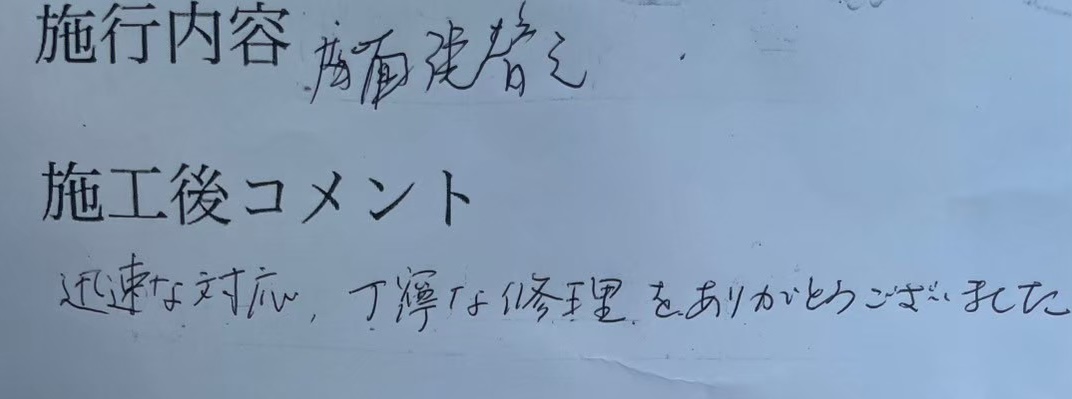 施行内容 座面張替え
施工後コメント
迅速な対応, 丁寧な修理をありがとうございました